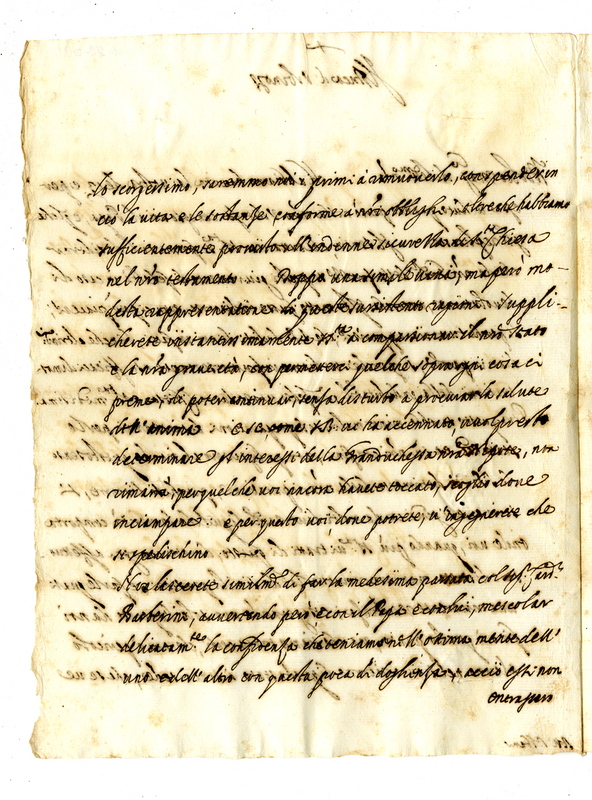 lo scorgessimo, saremmo noi i primi à rimuoverlo, con spender in
ciò la vita e le sostanze conforme à nri obblighi; oltre che habbiamo
sufficientemente provisto all'indenne sicurezza di Sta Chiesa
nel nro testamento. Doppo una simile viva, ma però mo-
desta rappresentatione di queste sussistenti ragioni suppli-
cherete instantissimamente S. Stà à compassionar il nro stato
e la nra grave età, con permetterci quel che sopra ogni cosa ci
preme, di poter continuar senza disturbo à procurar la salute
dell'anima: e se, come S.B. vi ha accennato, vuol presto
determinare gl'interessi della Granduchessa nra Nipote, non
rimarrà, per quel che voi ancora havete toccato, scoglio dove
inciampare e per questo voi dove potrete, v'ingegnerete che
si spedischino.
Non lascerete similmte di far la medesima passata col Sigr Cardl
Barberini, avvertendo però e con il Papa e con lui, mescolar
delicatamte la confidenza che teniamo nell'ottima mente dell'
uno e dell'altro con questa poca di doglienza, acciò essi non